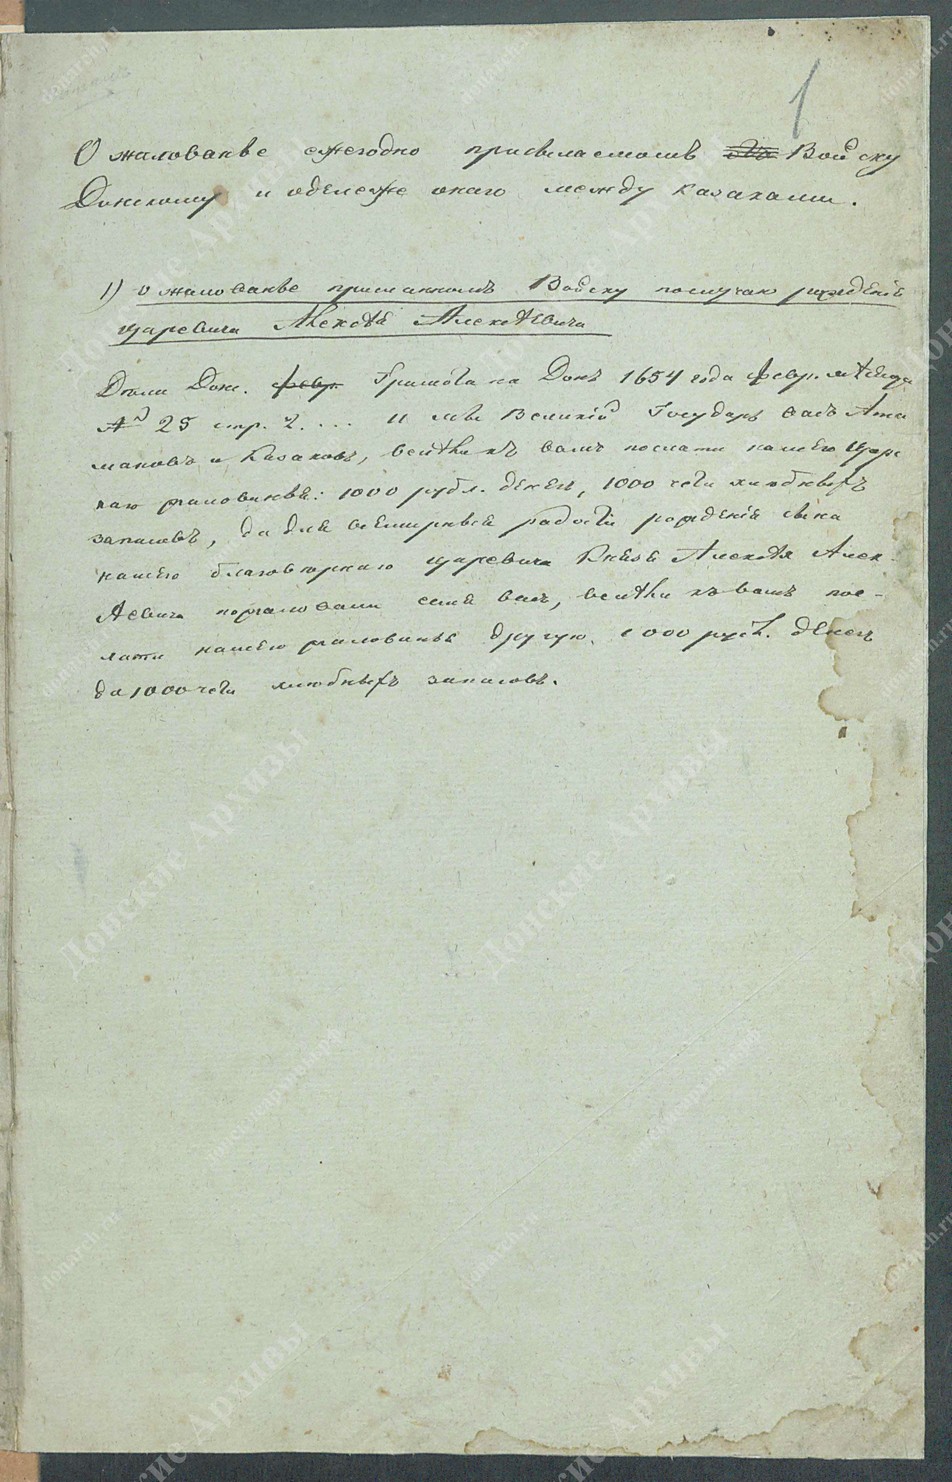 1
О жалованье ежегодно присылаемомъ Войску
Донскому и дележе онаго между казаками.
1) О жалованье присланномъ Войску по случаю рожденія
царевича Алексѣя Алексѣевича
Дѣла Дон. Грамота на Донъ 1654 года февр. мѣсяца
№ 25 стр. 2. ... и мы Великій Государь васъ Ата
мановъ и Казаковъ, велѣли къ вамъ послати нашего Царс
каго жалованья: 1000 рубл. денегъ, 1000 чети хлѣбныхъ
запасовъ, да для всемирныя радости рожденія сына
нашего благовѣрнаго царевича Князя Алексѣя Алек-
ѣевича пожаловали васъ, велѣли къ вамъ пос-
лати нашего жалованья другую 1000 рубл. денегъ
да 1000 чети хлѣбныхъ запасовъ.